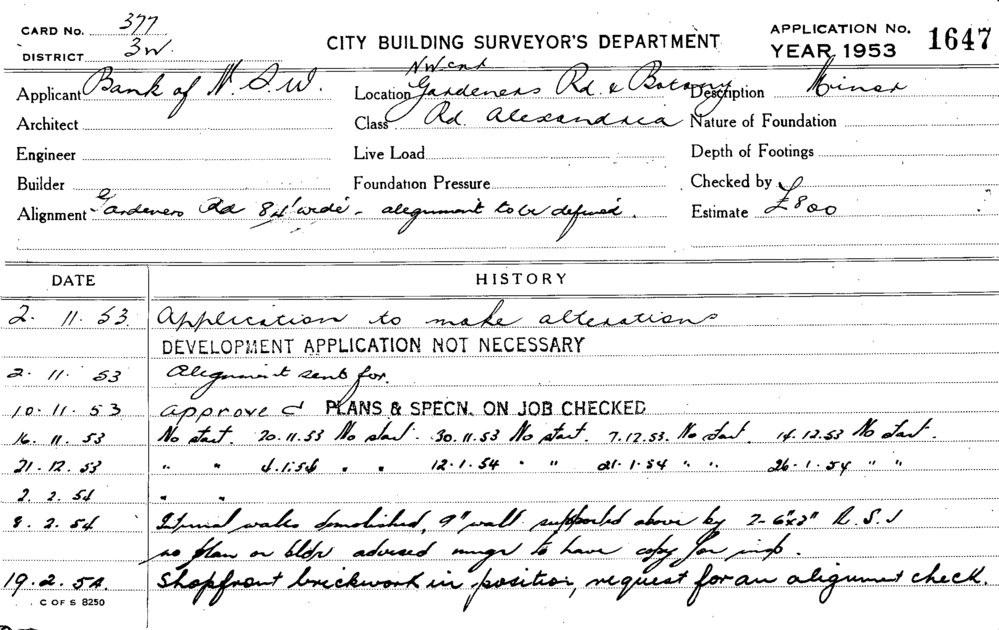 CARD No. 377
DISTRICT 3W.
CITY BUILDING SURVEYOR'S DEPARTMENT
APPLICATION No. 1647
YEAR 1953
Applicant Bank of N.S.W.
N.W. cnr
Location Gardeners Rd. & Botany
Description Minor
Architect
Class Rd. Alexandria
Nature of Foundation
Engineer
Live Load
Depth of Footings
Builder
Foundation Pressure
Checked by
Alignment Gardeners Rd 84' wide - alignment to be defined.
Estimate £800
DATE HISTORY
2. 11. 53. Application to make alterations
DEVELOPMENT APPLICATION NOT NECESSARY
2. 11. 53 Alignment sent for.
10. 11. 53 approved PLANS & SPECN. ON JOB CHECKED
16. 11. 53 No start. 20.11.53 No start. 30.11.53 No start. 7.12.53. No start. 14.12.53 No start.
21. 12. 53 " " 4.1.54 " " 12.1.54 " " 21.1.54 " " 26.1.54 " "
2. 2. 54 " "
8. 2. 54 Internal walls demolished, 9" wall supported above by 2-6"x3" R.S.J
no plan or bldr advised mngr to have copy for insp.
19. 2. 54. Shopfront brickwork in position, request for an alignment check.
C OF S 8250